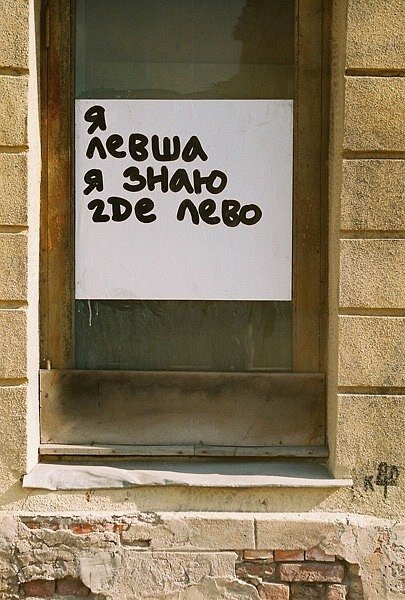 я
левша
я знаю
где лево
кф